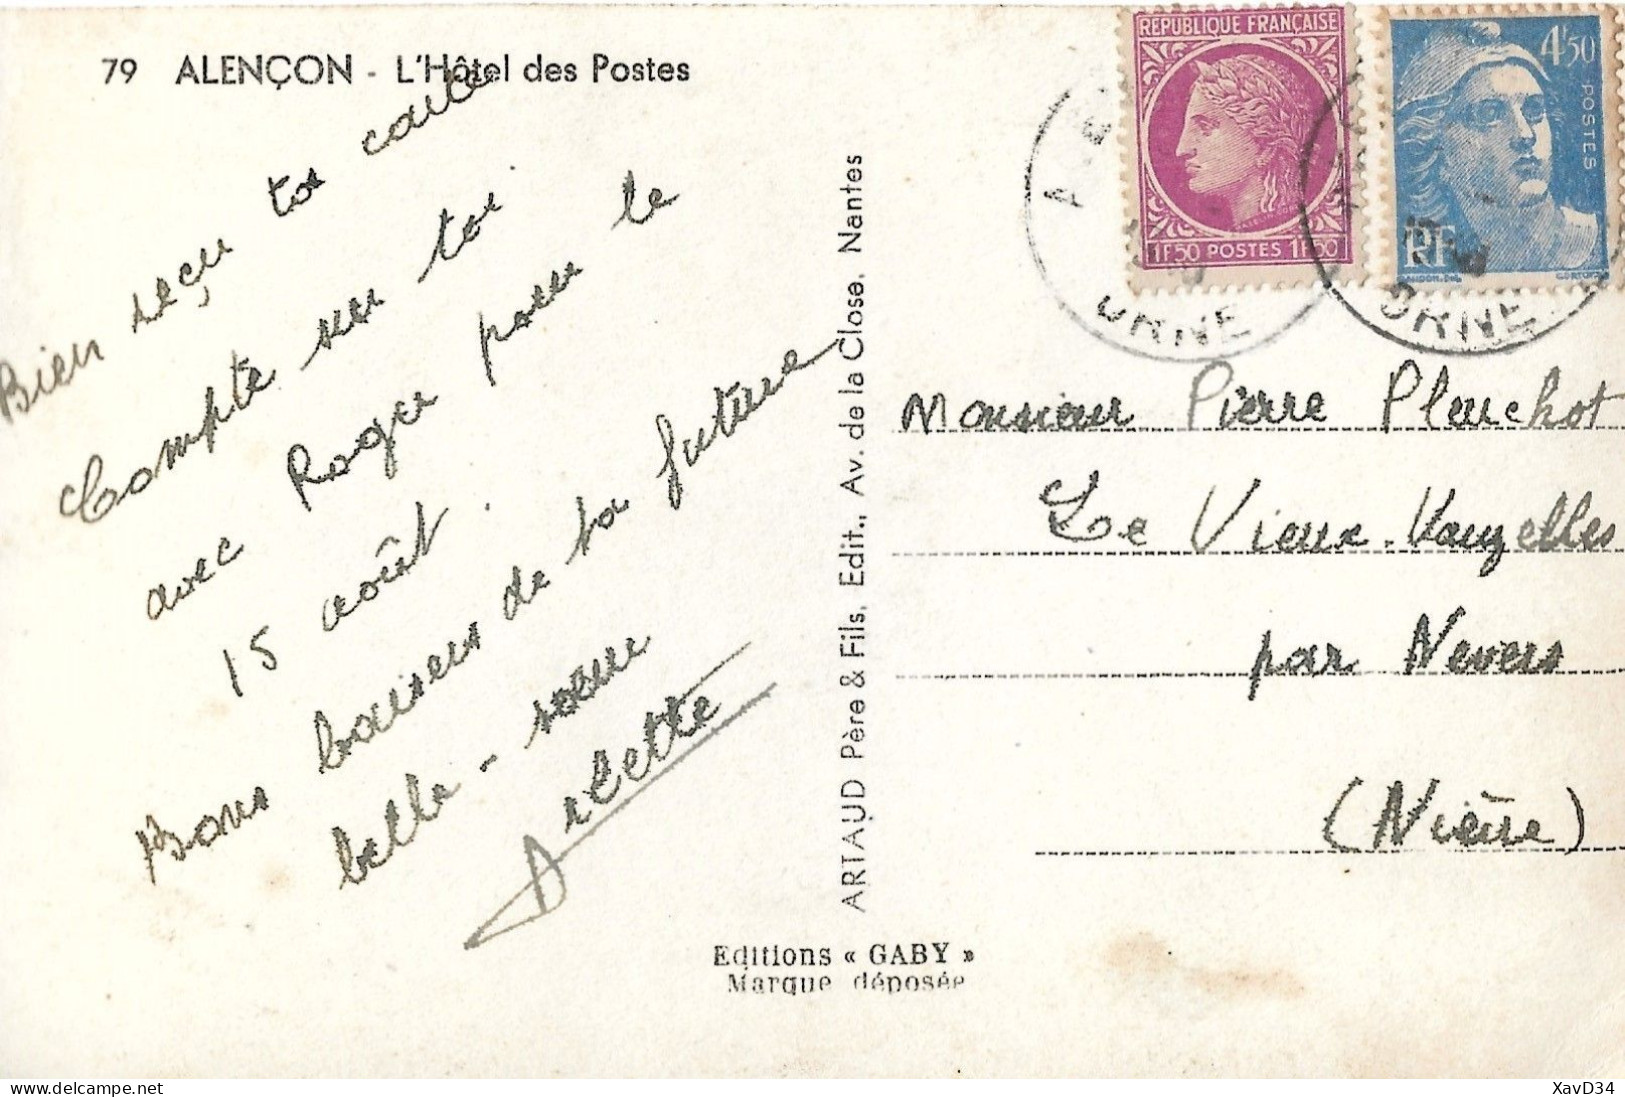 79 ALENÇON - L'Hôtel des Postes
Bien reçu ta carte
Compte sur toi
avec Roger pour le
15 août.
Bons baisers de ta future
belle-soeur
Arlette
ARTAUD Père & Fils, Edit., Av. de la Close, Nantes
Editions « GABY »
Marque déposée
REPUBLIQUE FRANÇAISE
1F50 POSTES 1F50
4F50
POSTES
RF
ORNE
ORNE
Monsieur Pierre Pleuchot
Le Vieux-Vauzelles
par Nevers
(Nièvre)
XavD34